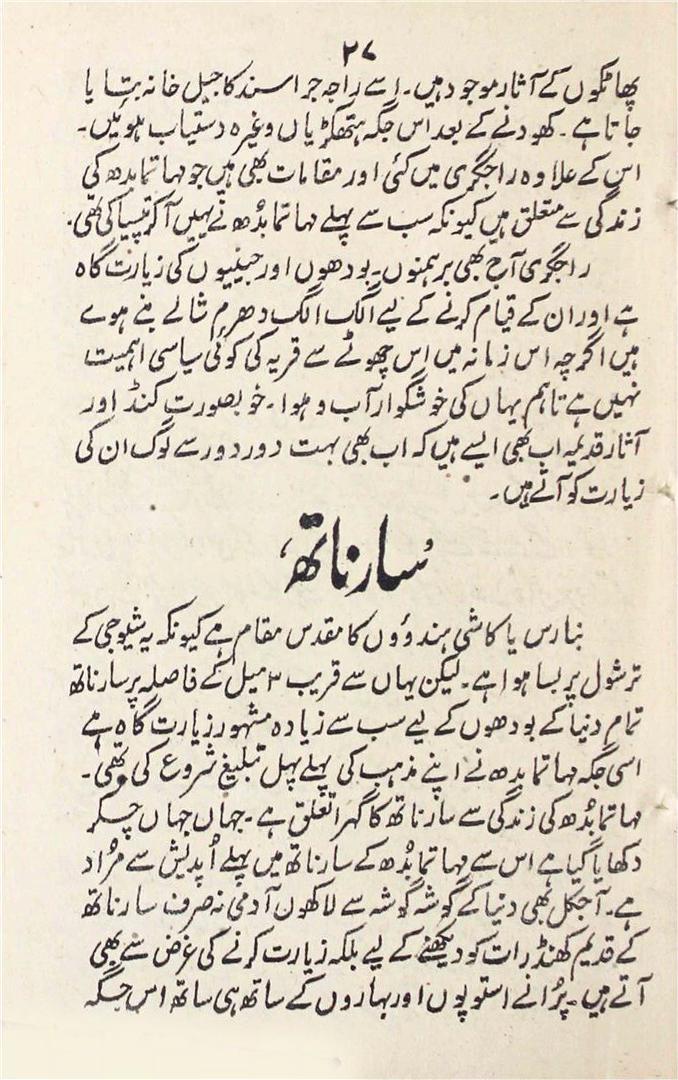 ۲۷
پھاٹکوں کے آثار موجود ہیں۔ اسے راجہ جراسند کا جیل خانہ بتایا
جاتا ہے۔ کھودنے کے بعد اس جگہ ہتھکڑیاں وغیرہ دستیاب ہوئیں۔
اس کے علاوہ راجگری میں کئی اور مقامات بھی ہیں جو مہاتما بدھ کی
زندگی سے متعلق ہیں کیونکہ سب سے پہلے مہاتما بدُھ نے یہیں آکر تپسیا کی تھی۔
راجگری آج بھی برہمنوں۔ بودھوں اور جینیوں کی زیارت گاہ
ہے اور ان کے قیام کرنے کے لیے الگ الگ دھرم شالے بنے ہوے
ہیں اگرچہ اس زمانہ میں اس چھوٹے سے قریہ کی کوئی سیاسی اہمیت
نہیں ہے تاہم یہاں کی خوشگوار آب و ہوا۔ خوبصورت کنڈ اور
آثار قدیمہ اب بھی ایسے ہیں کہ اب بھی بہت دور دور سے لوگ ان کی
زیارت کو آتے ہیں۔
سارناتھ
بنارس یا کاشی ہندوؤں کا مقدس مقام ہے کیونکہ یہ شیوجی کے
ترشول پر بسا ہوا ہے۔ لیکن یہاں سے قریب ۳ میل کے فاصلہ پر سارناتھ
تمام دنیا کے بودھوں کے لیے سب سے زیادہ مشہور زیارت گاہ ہے
اسی جگہ مہاتما بدھ نے اپنے مذہب کی پہلے پہل تبلیغ شروع کی تھی۔
مہاتما بدُھ کی زندگی سے سارناتھ کا گہرا تعلق ہے۔ جہاں جہاں چکر
دکھایا گیا ہے اس سے مہاتما بدُھ کے سارناتھ میں پہلے اُپدیش سے مرُاد
ہے۔ آجکل بھی دنیا کے گوشہ گوشہ سے لاکھوں آدمی نہ صرف سارناتھ
کے قدیم کھنڈرات کو دیکھنے کے لیے بلکہ زیارت کرنے کی غرض سے بھی
آتے ہیں۔ پرُانے استوپوں اور بہاروں کے ساتھ ہی ساتھ اس جگہ